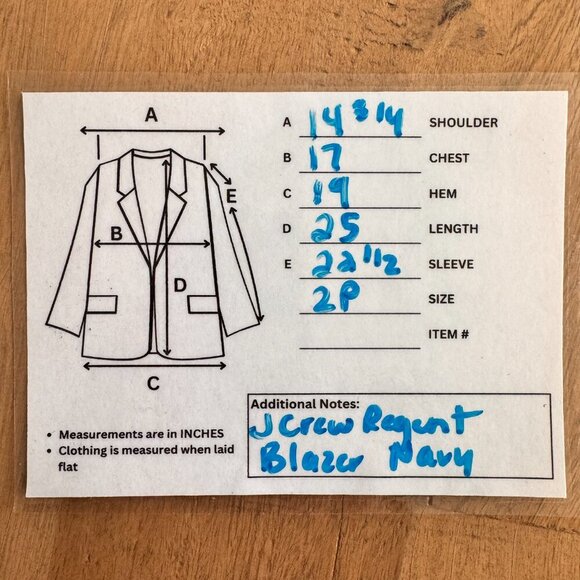 A
E
B
D
C
A 14 3/4 SHOULDER
B 17 CHEST
C 19 HEM
D 25 LENGTH
E 22 1/2 SLEEVE
2P SIZE
ITEM #
• Measurements are in INCHES
• Clothing is measured when laid
flat
Additional Notes:
J Crew Regent
Blazer Navy